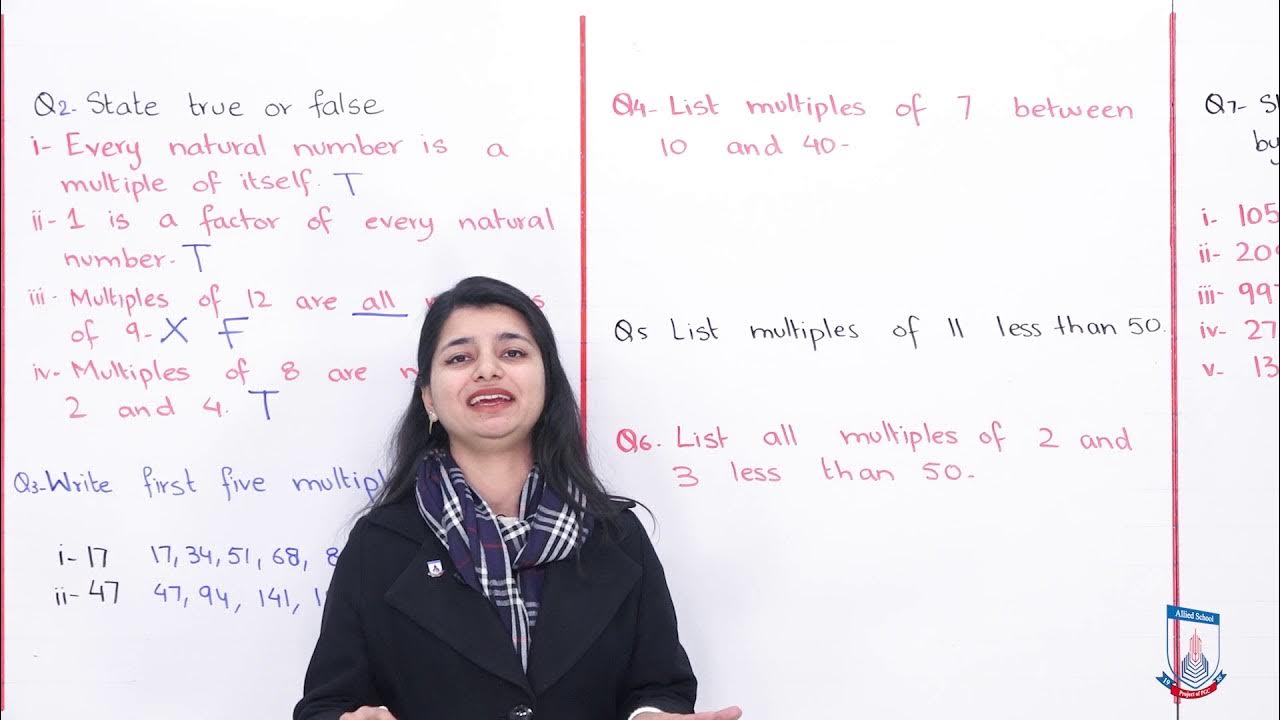 Q2- State true or false
i- Every natural number is a
multiple of itself. T
ii- 1 is a factor of every natural
number- T
iii- Multiples of 12 are all
of 9- X F
iv- Multiples of 8 are
2 and 4. T
Q3- Write first five
i- 17 17, 34, 51, 68,
ii- 47 47, 94, 141,
Q4- List multiples of 7 between
10 and 40-
Q5 List multiples of 11 less than 50.
Q6. List all multiples of 2 and
3 less than 50-
Q7-
by
i- 105
ii-
iii- 997
iv- 27
v- 13
Allied School
19
Project of PGC